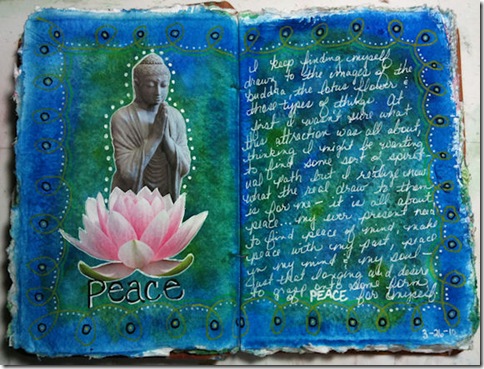 Peace
I keep finding myself
drawn to the images of the
buddha, the lotus flower &
those types of things. At
first I wasn't sure what
this attraction was all about,
thinking I might be wanting
to find some sort of spirit
ual path but I realize now
what the real draw to them
is for me - it is all about
peace - my ever present need
to find peace of mind, make
peace with my past, peace
in my mind & my soul -
Just that longing and desire
to grasp onto some form
of PEACE for myself.
3-26-10